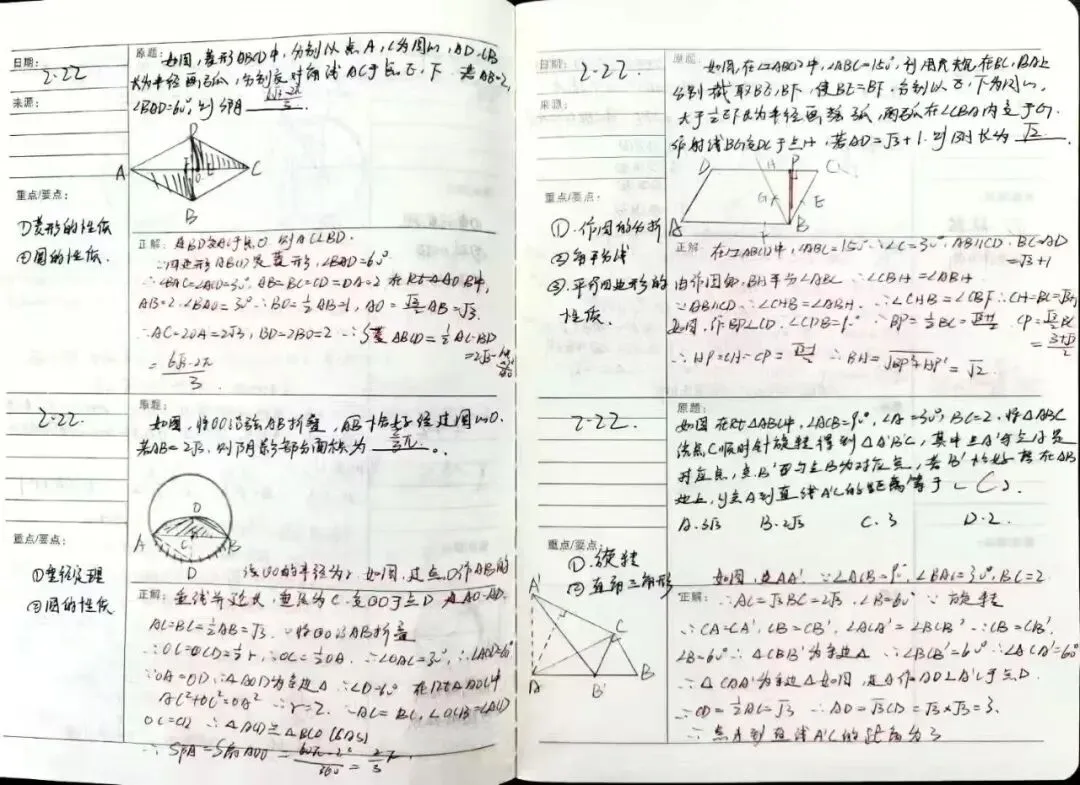 日期:
2.22
来源:
原题: 如图,菱形ABCD中,分别以点A,C为圆心,AD,CB
长为半径画弧,分别交对角线AC于点E,F.若AB=2,
∠BAD=60°,则S阴 (6√3-2π)/3.
D
A E O C
B
重点/要点:
①菱形的性质
②圆的性质.
正解: 连BD交AC于点O,则AC⊥BD.
∵四边形ABCD是菱形,∠BAD=60°
∴∠BAC=∠ACD=30°,AB=BC=CD=DA=2 在Rt△AOB中,
AB=2,∠BAO=30° ∴BO=½AB=1,AO=√3/2AB=√3.
∴AC=2OA=2√3,BD=2BO=2 ∴S菱ABCD=½AC·BD
=2√3
= (6√3-2π)/3
2.22
原题:
如图,将⊙O沿弦AB折叠,AB恰好经过圆心O.
若AB=2√3,则阴影部分面积为 ⅔π.
O
A C B
D
重点/要点:
①垂径定理
②圆的性质
设⊙O的半径为r.如图,过点O作AB的
正解: 垂线并延长,垂足为C.交⊙O于点D 连AO.AD.
AC=BC=½AB=√3.∵将⊙O沿AB折叠
∴OC=CD=½r,∴OC=½OA.∴∠OAC=30°,∴∠AOD=60°
∵OA=OD,∴△AOD为等边△ ∴∠D=60° 在Rt△AOC中
AC²+OC²=OA² ∴r=2.∵AC=BC,∠OCB=∠ACD
OC=CD ∴△ACD≌△BCO(SAS)
∴S阴=S扇AOD=60π·2²/360=⅔π.
日期:
2.22.
来源:
原题: 如图,在▱ABCD中,∠ABC=150°,利用尺规在BC,BA上
分别截取BE,BF,使BE=BF.分别以E,F为圆心,
大于½EF长为半径画弧,两弧在∠CBA内交于G,
作射线BG交DC于点H,若AD=√3+1.则BH长为 √2.
D H P C
G E
A F B
重点/要点:
①.作图的分析
②角平分线
③.平行四边形的
性质.
正解: 在▱ABCD中,∠ABC=150° ∴∠C=30°,AB∥CD,BC=AD
=√3+1
由作图知,BH平分∠ABC ∴∠CBH=∠ABH
∵AB∥CD ∴∠CHB=∠ABH.∴∠CHB=∠CBH ∴CH=BC=√3+1
如图,作BP⊥CD.∠CPB=90° ∴BP=½BC=(√3+1)/2 CP=√3/2BC
=(3+√3)/2
∴HP=CH-CP=(√3-1)/2 ∴BH=√(BP²+HP²)=√2.
2.22.
原题:
如图在Rt△ABC中,∠ACB=90°,∠A=30°,BC=2.将△ABC
绕点C顺时针旋转得到△A'B'C,其中点A'与点A是
对应点,点B'与点B为对应点,若B'恰好落在AB
边上,则点A到直线A'C的距离等于(C).
A.3√3 B.2√3 C.3 D.2.
重点/要点:
①.旋转
②直角三角形
A'
C
A B' B
如图,连AA'.∵∠ACB=90°,∠BAC=30°,BC=2
正解: ∴AC=√3BC=2√3,∠B=60° ∵旋转
∴CA=CA',CB=CB',∠ACA'=∠BCB' ∵CB=CB',
∠B=60° ∴△CBB'为等边△ ∴∠BCB'=60° ∴∠ACA'=60°
∴△CAA'为等边△ 如图,过A作AD⊥A'C于点D.
∴CD=½AC=√3 ∴AD=√3CD=√3×√3=3.
∴点A到直线A'C的距离为3